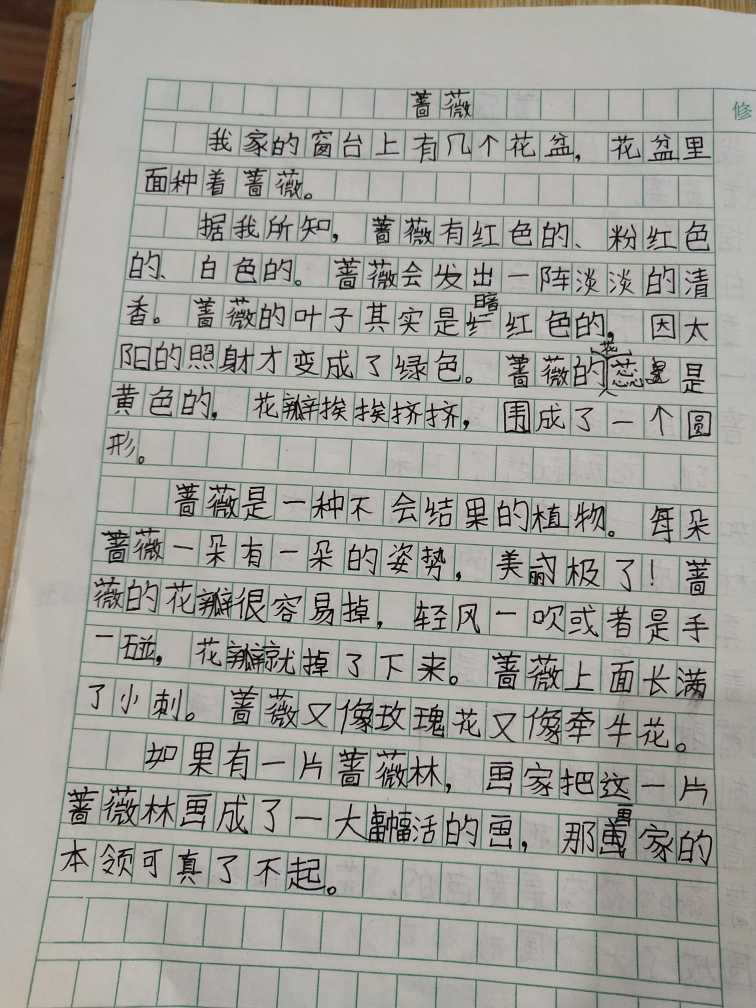 修
蔷薇
我家的窗台上有几个花盆，花盆里
面种着蔷薇。
据我所知，蔷薇有红色的、粉红色
的、白色的。蔷薇会发出一阵淡淡的清
香。蔷薇的叶子其实是暗红色的，因太
阳的照射才变成了绿色。蔷薇的花蕊是
黄色的，花瓣挨挨挤挤，围成了一个圆
形。
蔷薇是一种不会结果的植物。每朵
蔷薇一朵有一朵的姿势，美丽极了！蔷
薇的花瓣很容易掉，轻风一吹或者是手
一碰，花瓣就掉了下来。蔷薇上面长满
了小刺。蔷薇又像玫瑰花又像牵牛花。
如果有一片蔷薇林，画家把这一片
蔷薇林画成了一大幅活的画，那画家的
本领可真了不起。